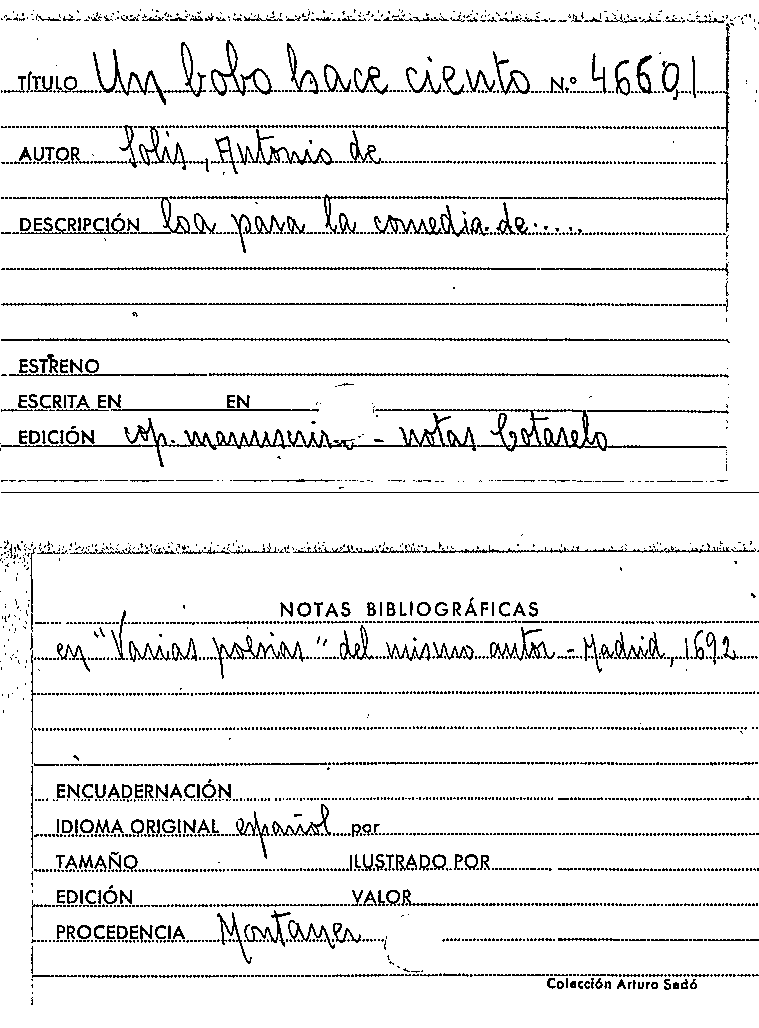 TÍTULO Un bobo hace ciento N.º 46601
AUTOR Solis, Antonio de
DESCRIPCIÓN loa para la comedia de.....
ESTRENO
ESCRITA EN EN
EDICIÓN cop. manuscri - notas Cotarelo
NOTAS BIBLIOGRÁFICAS
en "Varias poesias" del mismo autor - Madrid, 1692
ENCUADERNACIÓN
IDIOMA ORIGINAL español por
TAMAÑO ILUSTRADO POR
EDICIÓN VALOR
PROCEDENCIA Montaner
Colección Arturo Sedó